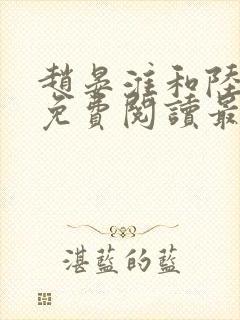 趙晏淮和陸
免費閱讀最
湛藍的藍